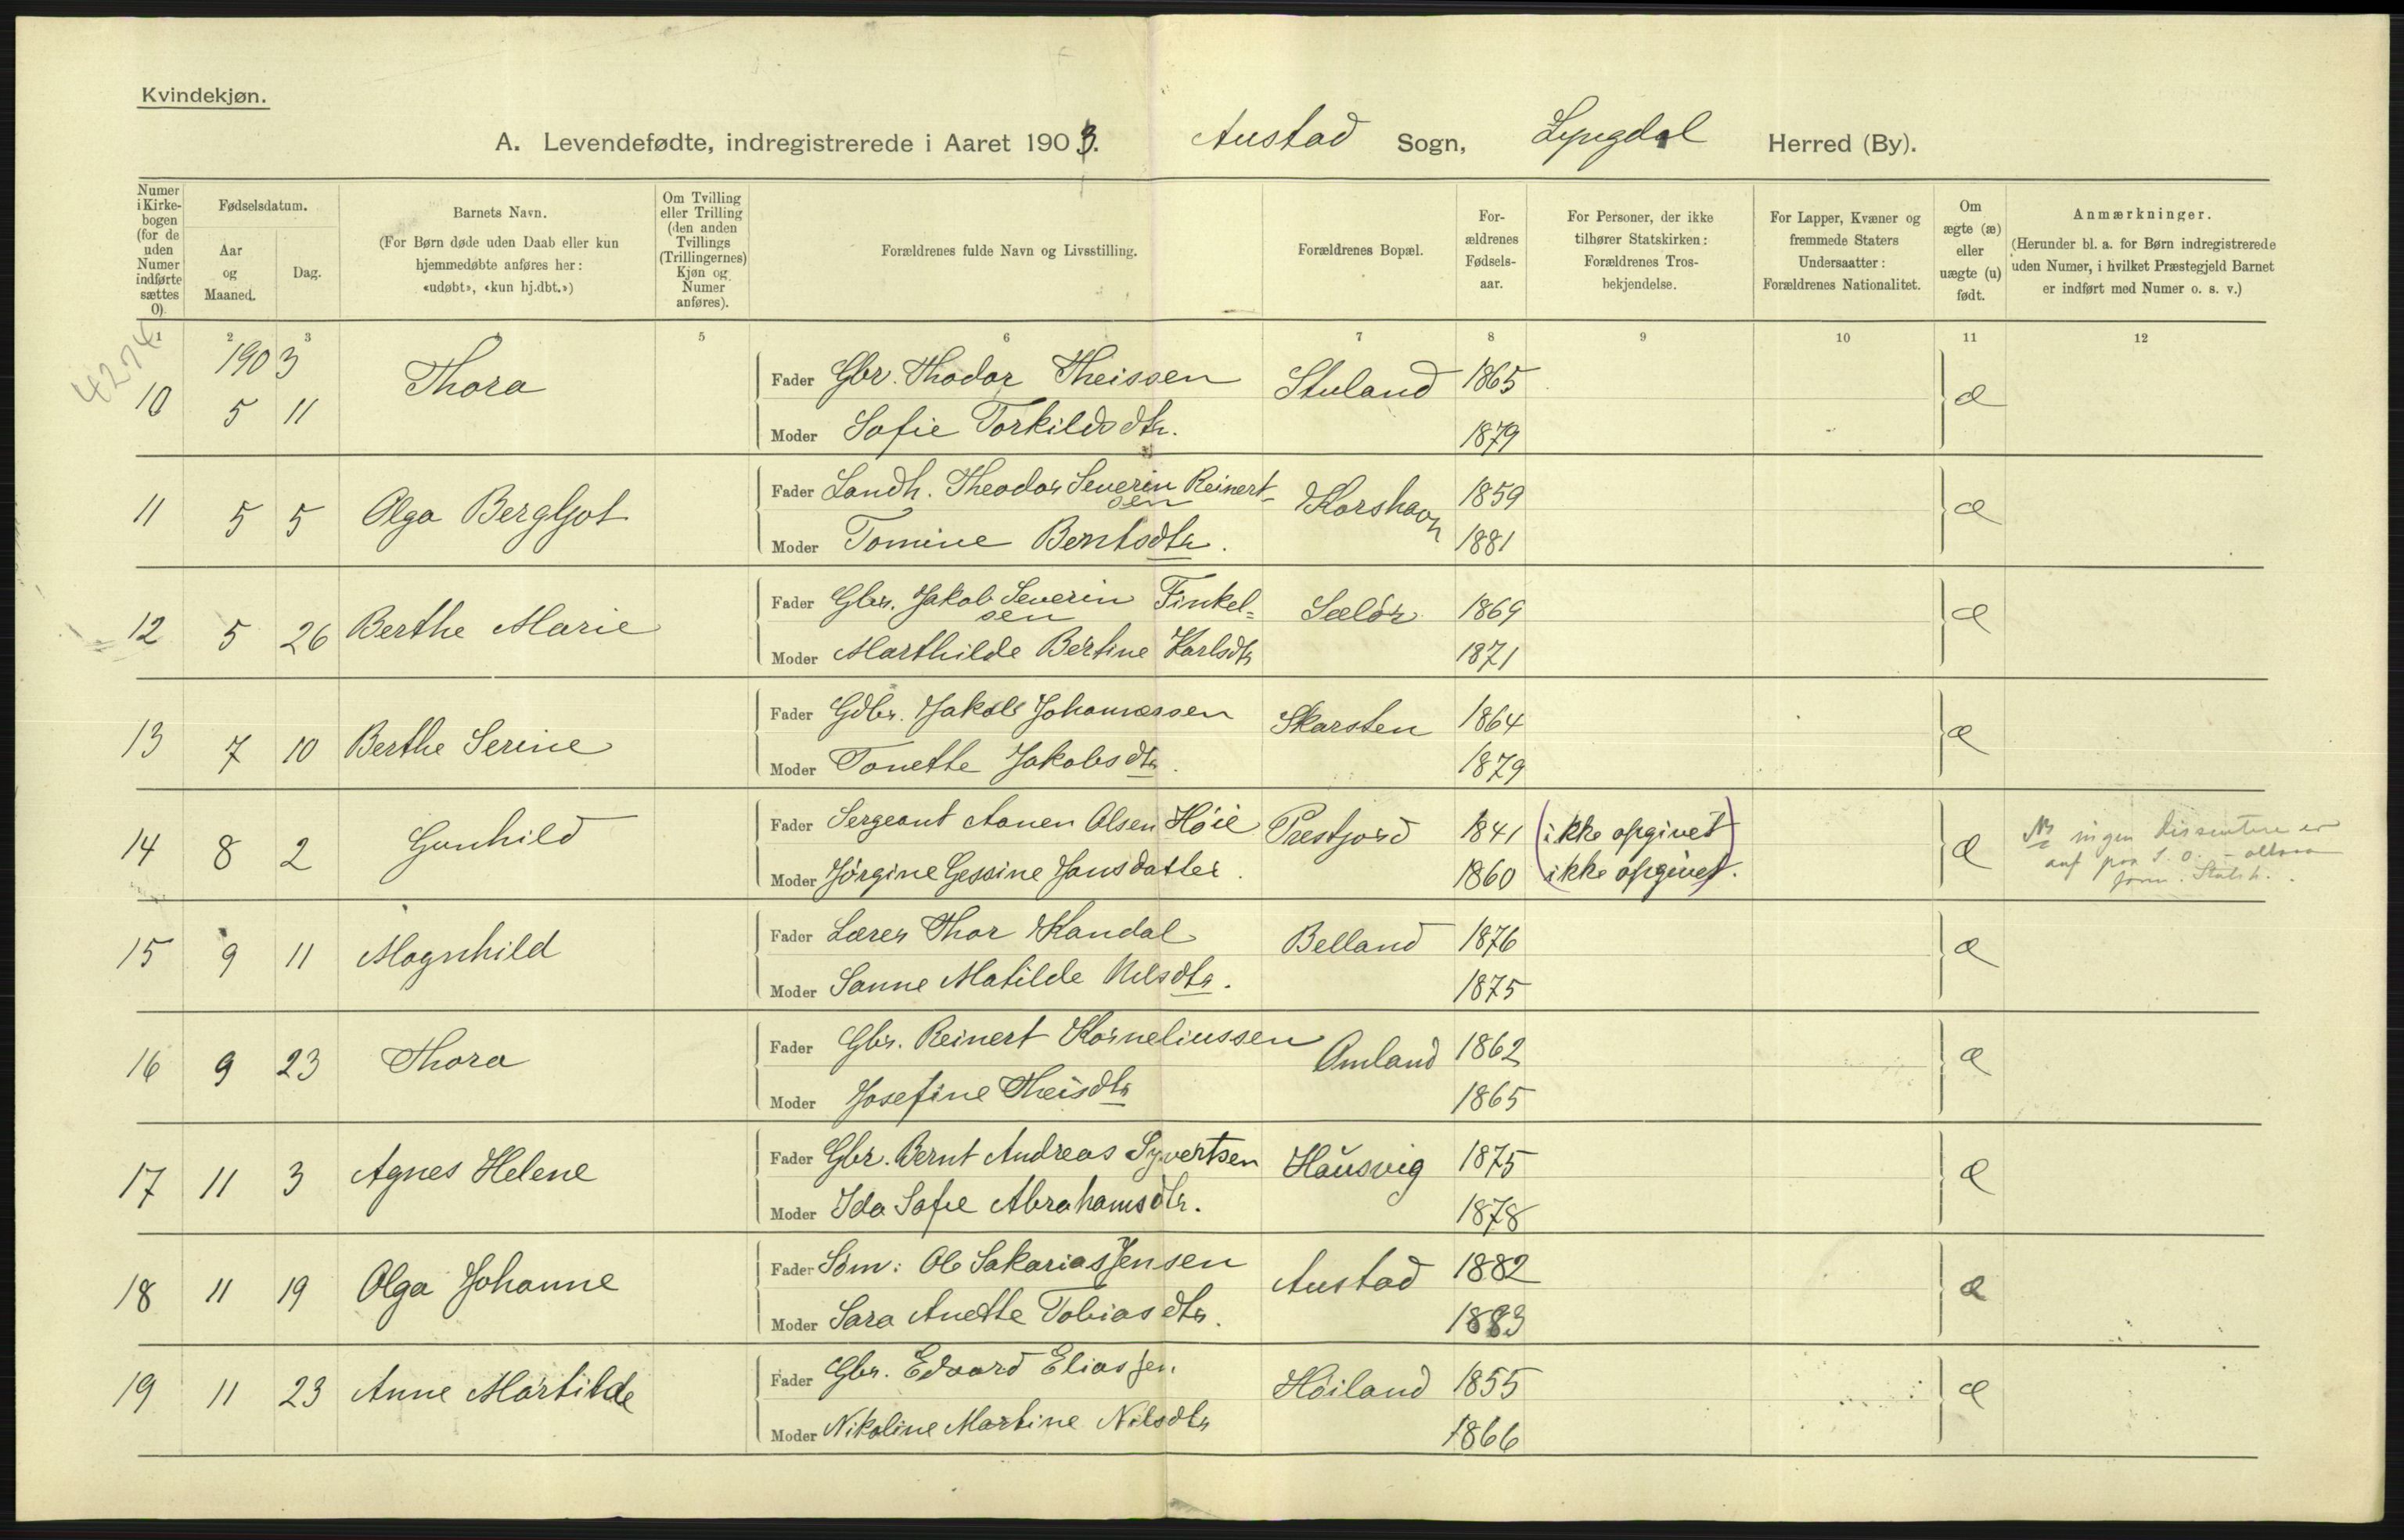 Kvindekjøn.
A. Levendefødte, indregistrerede i Aaret 1903. Austad Sogn, Lyngdal Herred (By).
Numer i Kirkebogen (for de uden Numer indførte sættes 0).
Fødselsdatum.
Aar og Maaned.
Dag.
Barnets Navn.
(For Børn døde uden Daab eller kun hjemmedøbte anføres her: «udøbt», «kun hj.dbt.»)
Om Tvilling eller Trilling (den anden Tvillings (Trillingernes) Kjøn og Numer anføres).
Forældrenes fulde Navn og Livsstilling.
Forældrenes Bopæl.
For-ældrenes Fødsels-aar.
For Personer, der ikke tilhører Statskirken: Forældrenes Tros-bekjendelse.
For Lapper, Kvæner og fremmede Staters Undersaatter: Forældrenes Nationalitet.
Om ægte (æ) eller uægte (u) født.
Anmærkninger.
(Herunder bl. a. for Børn indregistrerede uden Numer, i hvilket Præstegjeld Barnet er indført med Numer o. s. v.)
1 2 3 5 6 7 8 9 10 11 12
4274
1903
10 5 11 Thora Fader Gbr. Thodor Theissen Stuland 1865 æ
Moder Sofie Torkildsdtr. 1879
11 5 5 Olga Bergljot Fader Landh. Theodor Severin Reinert-sen Korshavn 1859 æ
Moder Tomine Berntsdtr. 1881
12 5 26 Berthe Marie Fader Gbr. Jakob Severin Finkel=sen Sælør 1869 æ
Moder Marthilde Bertine Karlsdtr 1871
13 7 10 Berthe Serine Fader Gdbr. Jakob Johannessen Skarsten 1864 æ
Moder Tonette Jakobsdtr. 1879
14 8 2 Gunhild Fader Sergeant Aanen Olsen Høie Prestjord 1841 (ikke opgivet) æ
Moder Jørgine Gessine Jansdatter. 1860 (ikke opgivet.)
ingen dissentere er
15 9 11 Magnhild Fader Lærer Thor Kandal Belland 1876 æ
Moder Sanne Matilde Nilsdtr. 1875
16 9 23 Thora Fader Gbr. Reinert Korneliussen Omland 1862 æ
Moder Josefine Theisdtr 1865
17 11 3 Agnes Helene Fader Gbr. Bernt Andreas Syvertsen Hausvig 1875 æ
Moder Ida Sofie Abrahamsdtr. 1878
18 11 19 Olga Johanne Fader Søm: Ole Sakarias Jensen Austad 1882 æ
Moder Sara Anette Tobiasdtr. 1883
19 11 23 Anne Martilde Fader Gbr. Edvard Eliassen Høiland 1855 æ
Moder Nikoline Martine Nilsdtr 1866